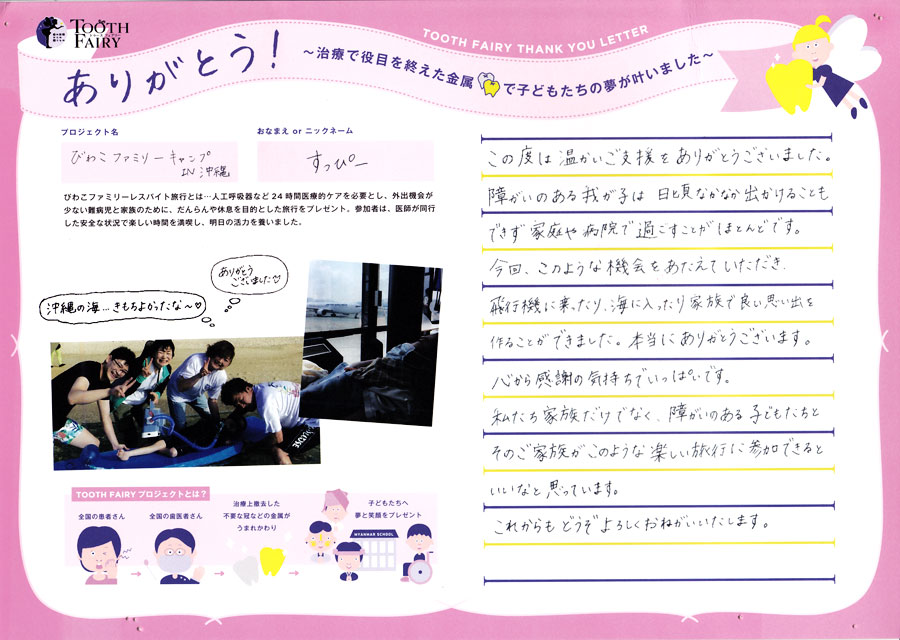 TOOTH FAIRY
TOOTH FAIRY THANK YOU LETTER
ありがとう!
〜治療で役目を終えた金属で子どもたちの夢が叶いました〜
プロジェクト名
びわこファミリーキャンプ
IN 沖縄
おなまえ or ニックネーム
すっぴー
びわこファミリーレスパイト旅行とは…人工呼吸器など24時間医療的ケアを必要とし、外出機会が
少ない難病児と家族のために、だんらんや休息を目的とした旅行をプレゼント。参加者は、医師が同行
した安全な状況で楽しい時間を満喫し、明日の活力を養いました。
ありがとう
ございました♡
沖縄の海...きもちよかったな〜♡
TOOTH FAIRY プロジェクトとは?
全国の患者さん
全国の歯医者さん
治療上撤去した
不要な冠などの金属が
うまれかわり
子どもたちへ
夢と笑顔をプレゼント
MYANMAR SCHOOL
この度は温かいご支援をありがとうございました。
障がいのある我が子は日頃なかなか出かけることも
できず家庭や病院で過ごすことがほとんどです。
今回、このような機会をあたえていただき、
飛行機に乗ったり、海に入ったり家族で良い思い出を
作ることができました。本当にありがとうございます。
心から感謝の気持ちでいっぱいです。
私たち家族だけでなく、障がいのある子どもたちと
そのご家族がこのような楽しい旅行に参加できると
いいなと思っています。
これからもどうぞよろしくおねがいいたします。